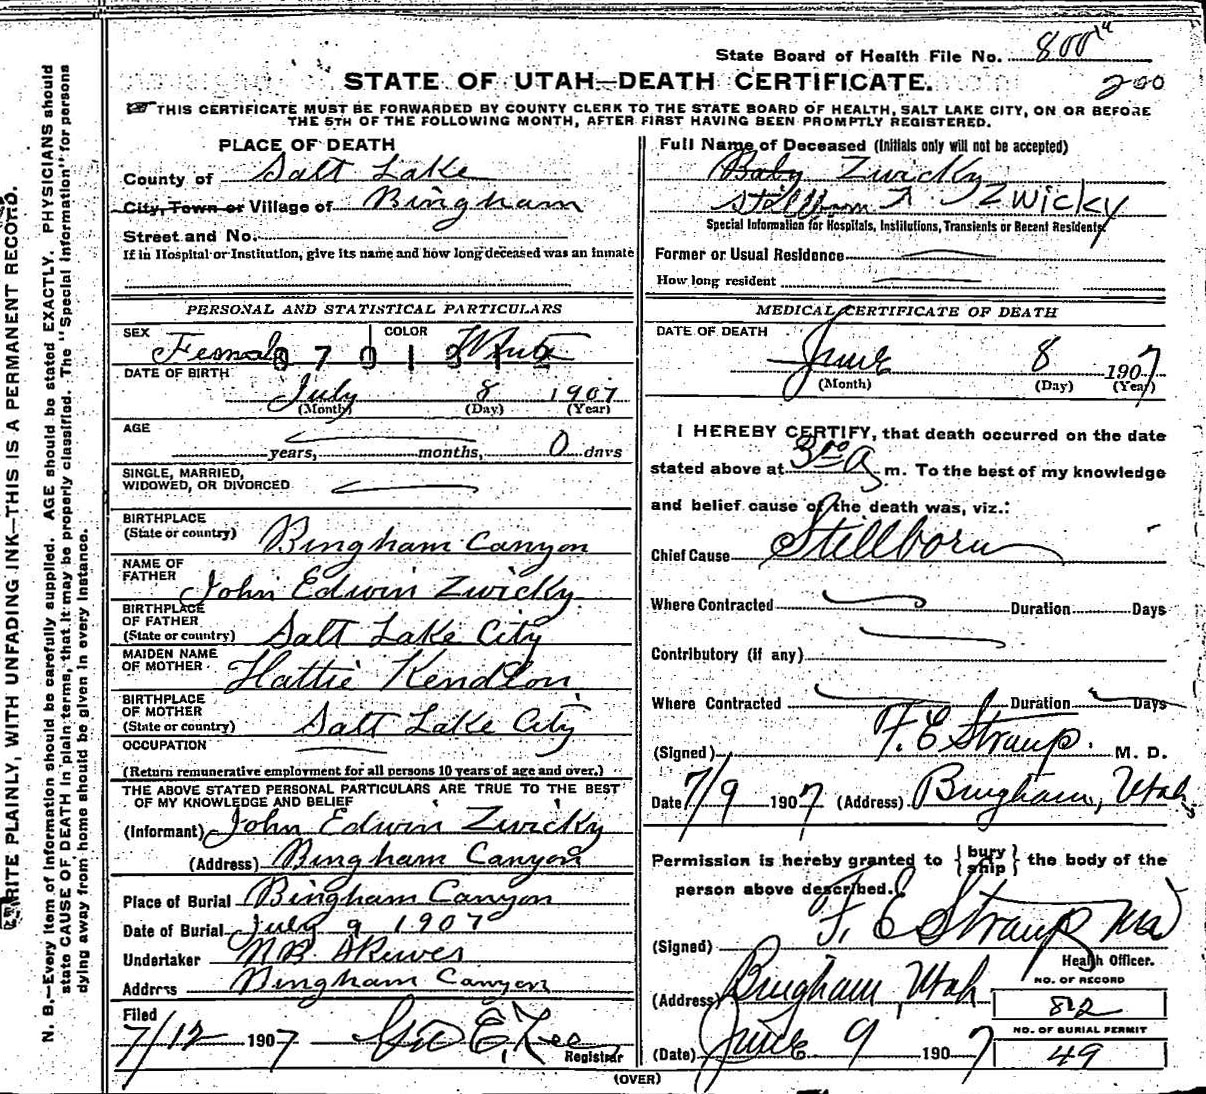 State Board of Health File No. 800
200
STATE OF UTAH—DEATH CERTIFICATE.
THIS CERTIFICATE MUST BE FORWARDED BY COUNTY CLERK TO THE STATE BOARD OF HEALTH, SALT LAKE CITY, ON OR BEFORE
THE 5TH OF THE FOLLOWING MONTH, AFTER FIRST HAVING BEEN PROMPTLY REGISTERED.
WRITE PLAINLY, WITH UNFADING INK—THIS IS A PERMANENT RECORD.
N. B.—Every item of information should be carefully supplied. AGE should be stated EXACTLY. PHYSICIANS should
state CAUSE OF DEATH in plain terms, that it may be properly classified. The "Special Information" for persons
dying away from home should be given in every instance.
PLACE OF DEATH
County of Salt Lake
City, Town or Village of Bingham
Street and No.
If in Hospital or Institution, give its name and how long deceased was an inmate
PERSONAL AND STATISTICAL PARTICULARS
SEX Female COLOR White
8 7 0 1 3 1 2
DATE OF BIRTH
July 8 1907
(Month) (Day) (Year)
AGE
years, months, 0 days
SINGLE, MARRIED,
WIDOWED, OR DIVORCED
BIRTHPLACE
(State or country) Bingham Canyon
NAME OF
FATHER John Edwin Zwicky
BIRTHPLACE
OF FATHER
(State or country) Salt Lake City
MAIDEN NAME
OF MOTHER Hattie Kendlon
BIRTHPLACE
OF MOTHER
(State or country) Salt Lake City
OCCUPATION
(Return remunerative employment for all persons 10 years of age and over.)
THE ABOVE STATED PERSONAL PARTICULARS ARE TRUE TO THE BEST
OF MY KNOWLEDGE AND BELIEF
(Informant) John Edwin Zwicky
(Address) Bingham Canyon
Place of Burial Bingham Canyon
Date of Burial July 9 1907
Undertaker
Address Bingham Canyon
Filed
7/12 1907 Lee
Registrar
Full Name of Deceased (Initials only will not be accepted)
Baby Zwicky
Stillborn Zwicky
Special Information for Hospitals, Institutions, Transients or Recent Residents.
Former or Usual Residence
How long resident
MEDICAL CERTIFICATE OF DEATH
DATE OF DEATH
June 8 1907
(Month) (Day) (Year)
I HEREBY CERTIFY, that death occurred on the date
stated above at 3 A m. To the best of my knowledge
and belief cause of the death was, viz.:
Chief Cause Stillborn
Where Contracted Duration Days
Contributory (if any)
Where Contracted Duration Days
(Signed) F. E. Straup M. D.
Date 7/9 1907 (Address) Bingham, Utah
Permission is hereby granted to { bury ship } the body of the
person above described.
(Signed) F. E. Straup MD
Health Officer.
(Address) Bingham, Utah
(Date) June 9 1907
NO. OF RECORD
82
NO. OF BURIAL PERMIT
49
(OVER)